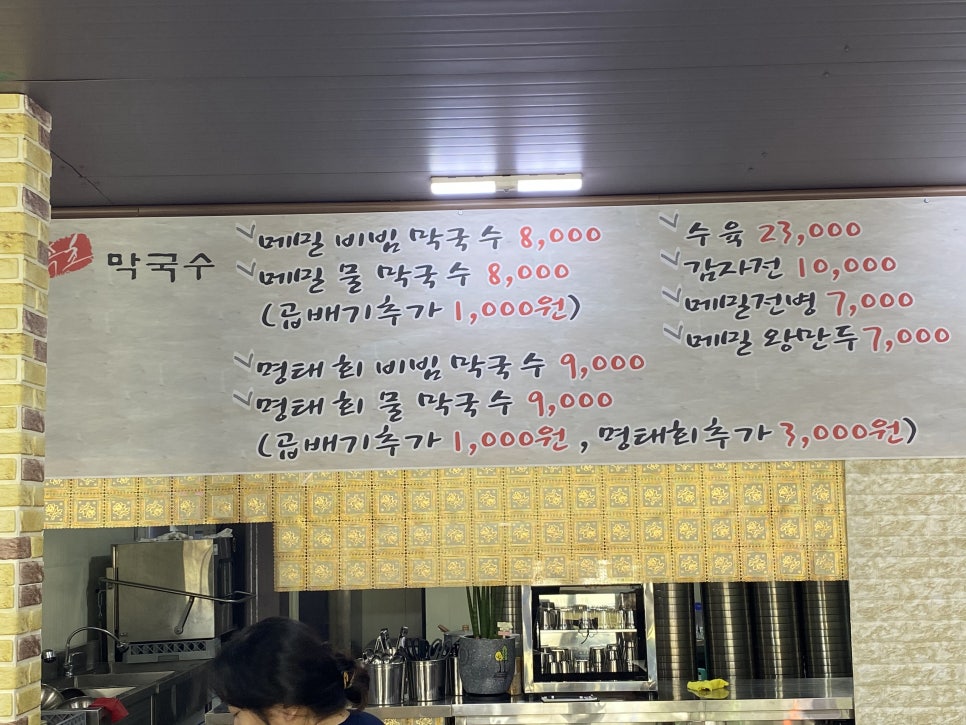 막국수
메밀 비빔 막국수 8,000
메밀 물 막국수 8,000
(곱배기추가 1,000원)
명태회 비빔 막국수 9,000
명태회 물 막국수 9,000
(곱배기추가 1,000원, 명태회추가 3,000원)
수육 23,000
감자전 10,000
메밀전병 7,000
메밀 왕만두 7,000